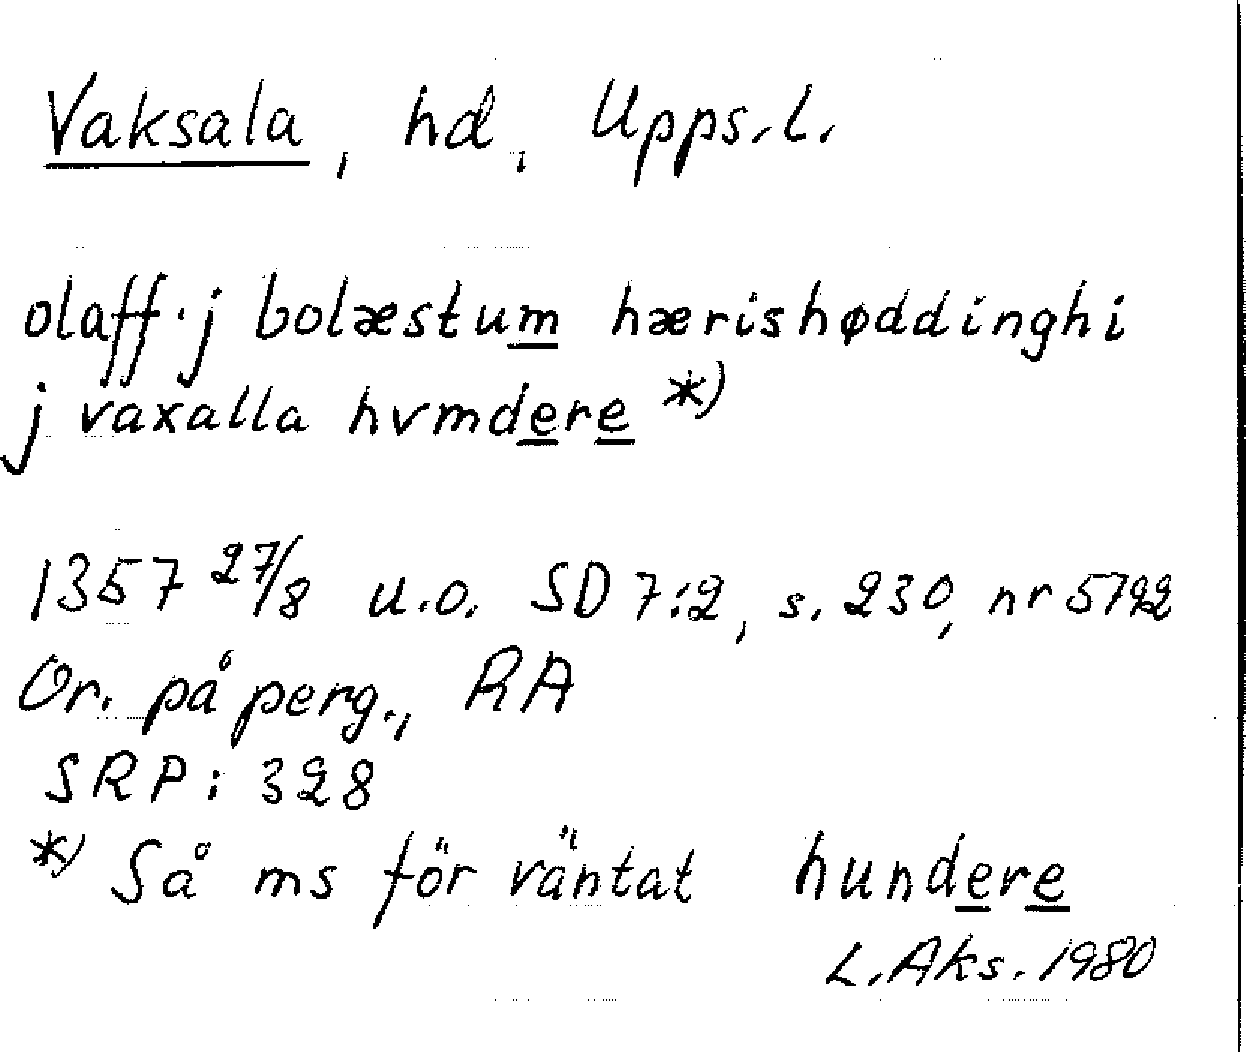 Vaksala, hd, Upps.l.
olaff. j bolæstum hærishøddinghi
j vaxalla hvmdere *)
1357 27/8 u.o. SD 7:2, s. 230, nr 5792
Or. på perg., RA
SRP: 328
*) Så ms för väntat hundere
L. Aks. 1980